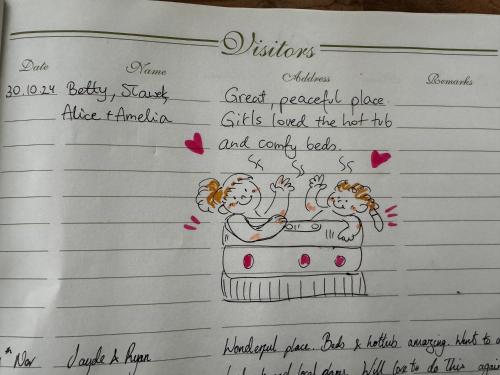 Visitors
Date Name Address Remarks
30.10.24 Betty, Slavek, Great, peaceful place.
Alice + Amelia Girls loved the hot tub
and comfy beds.
Nov Jayde & Ryan Wonderful place. Beds & hottub amazing. Want to
local dogs. Will love to do this again